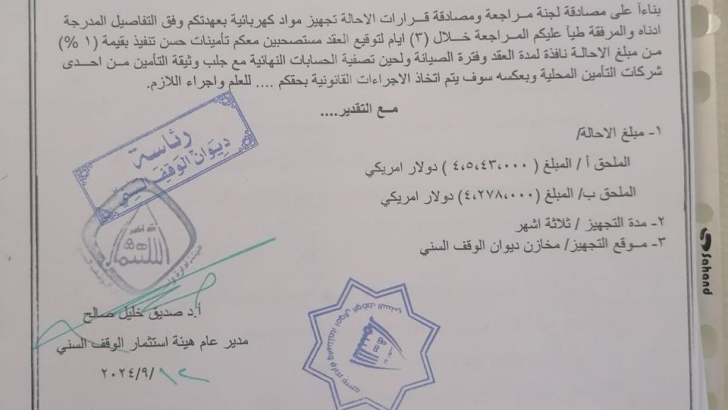 بناءاً على مصادقة لجنة مراجعة ومصادقة قرارات الاحالة تجهيز مواد كهربائية بعهدتكم وفق التفاصيل المدرجة
ادناه والمرفقة طياً عليكم المراجعة خلال (٣) ايام لتوقيع العقد مستصحبين معكم تأمينات حسن تنفيذ بقيمة (١ %)
من مبلغ الاحالة نافذة لمدة العقد وفترة الصيانة ولحين تصفية الحسابات النهائية مع جلب وثيقة التأمين من احدى
شركات التأمين المحلية وبعكسه سوف يتم اتخاذ الاجراءات القانونية بحقكم .... للعلم واجراء اللازم.
مع التقدير....
١- مبلغ الاحالة/
الملحق أ / المبلغ ( ٤،٥٤٣،٠٠٠ ) دولار امريكي
الملحق ب/ المبلغ (٤،٢٧٨،٠٠٠) دولار امريكي
٢- مدة التجهيز / ثلاثة اشهر
٣- موقع التجهيز/ مخازن ديوان الوقف السني
رئاسة
ديوان الوقف السني
أ.د صديق خليل صالح
مدير عام هيئة استثمار الوقف السني
٢٠٢٤/٩/١٢
Sahand